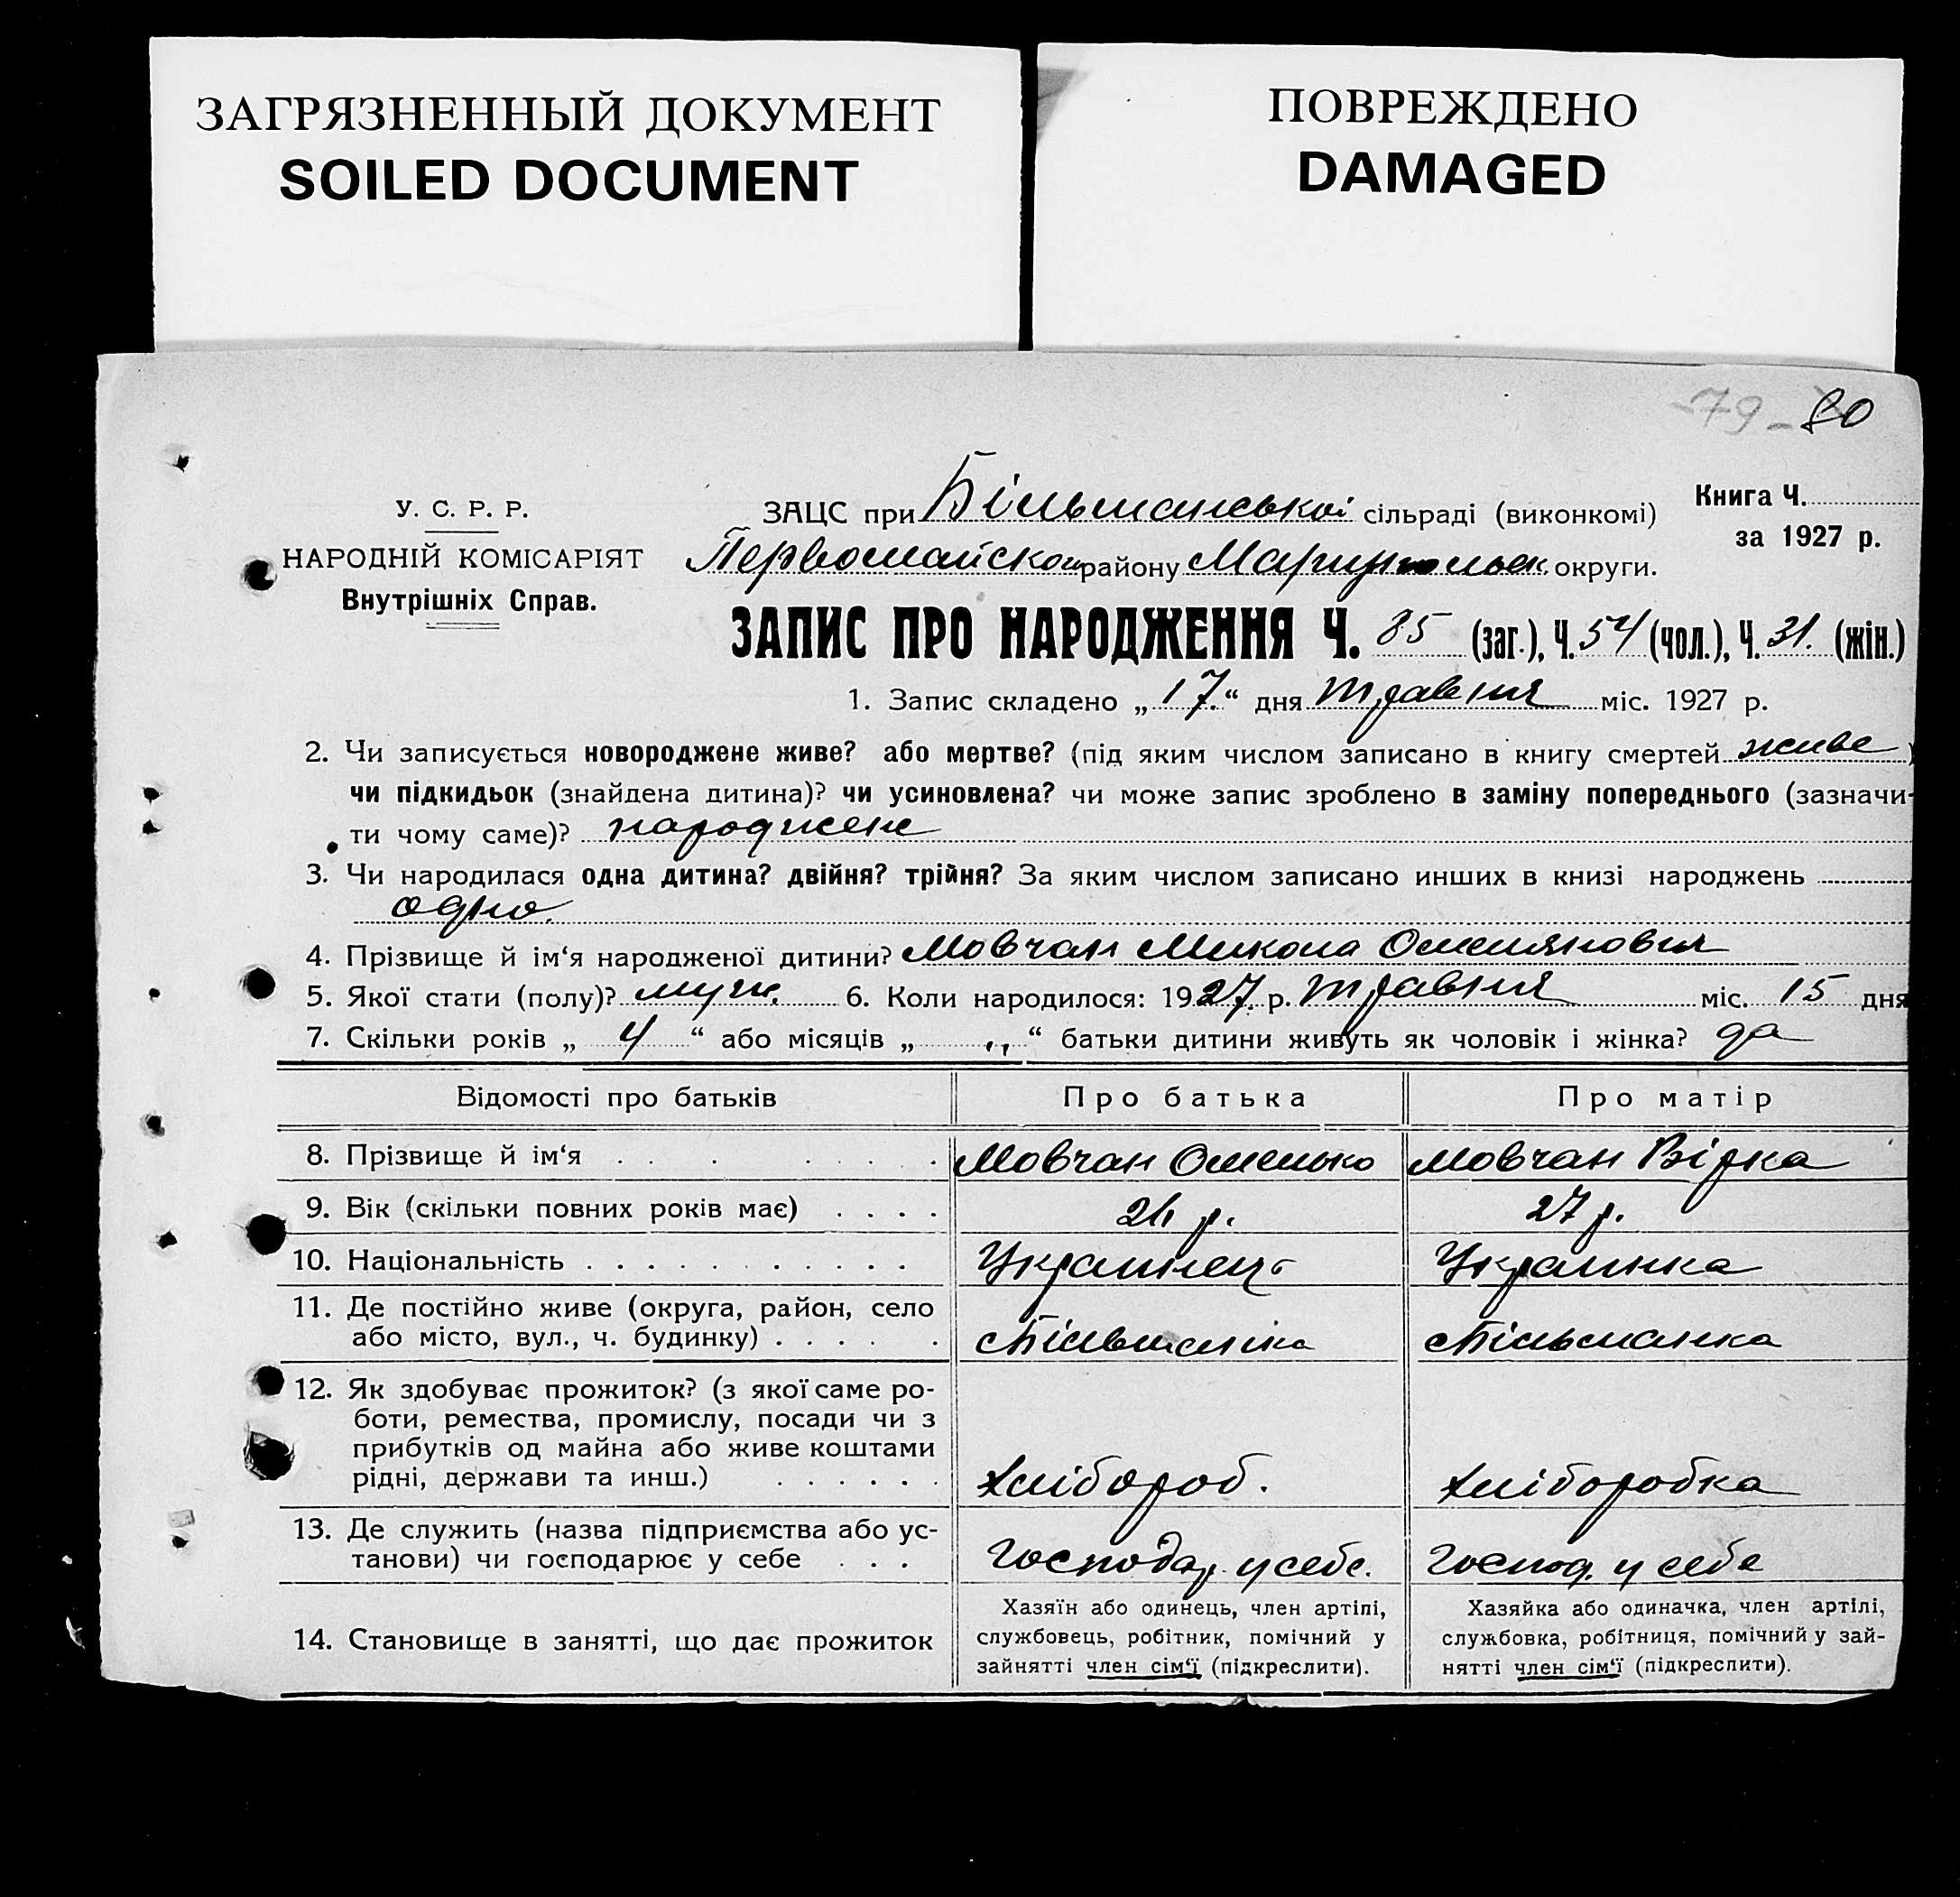 ЗАГРЯЗНЕННЫЙ ДОКУМЕНТ
SOILED DOCUMENT
ПОВРЕЖДЕНО
DAMAGED
79 - 80
У. С. Р. Р.
НАРОДНІЙ КОМІСАРІЯТ
Внутрішніх Справ.
ЗАЦС при Більманської сільраді (виконкомі)
Первомайской району Маріупольськ. округи.
Книга Ч.
за 1927 р.
ЗАПИС ПРО НАРОДЖЕННЯ Ч. 85 (заг.), Ч. 54 (чол.), Ч. 31. (жін.)
1. Запис складено „ 17. “ дня травня міс. 1927 р.
2. Чи записується новороджене живе? або мертве? (під яким числом записано в книгу смертей живе )
чи підкидьок (знайдена дитина)? чи усиновлена? чи може запис зроблено в заміну попереднього (зазначи-
ти чому саме)? народжене
3. Чи народилася одна дитина? двійня? трійня? За яким числом записано инших в книзі народжень
одно.
4. Прізвище й ім‘я народженої дитини? Мовчан Микола Омелянович
5. Якої стати (полу)? муж. 6. Коли народилося: 1927. р. травня міс. 15 дня
7. Скільки років „ 4 “ або місяців „ „ “ батьки дитини живуть як чоловік і жінка? да
Відомості про батьків
Про батька
Про матір
8. Прізвище й ім‘я
Мовчан Омелько
Мовчан Вірка
9. Вік (скільки повних років має)
26 р.
27 р.
10. Національність
Украинець
Украинка
11. Де постійно живе (округа, район, село
або місто, вул., ч. будинку)
с Більманка
с Більманка
12. Як здобуває прожиток? (з якої саме ро-
боти, ремества, промислу, посади чи з
прибутків од майна або живе коштами
рідні, держави та инш.)
Хлібороб.
Хліборобка
13. Де служить (назва підприємства або ус-
танови) чи господарює у себе
Господар. у себе.
Господ. у себе
14. Становище в занятті, що дає прожиток
Хазяїн або одинець, член артілі,
службовець, робітник, помічний у
зайнятті член сім‘ї (підкреслити).
Хазяйка або одиначка, член артілі,
службовка, робітниця, помічний у зай-
нятті член сім‘ї (підкреслити).